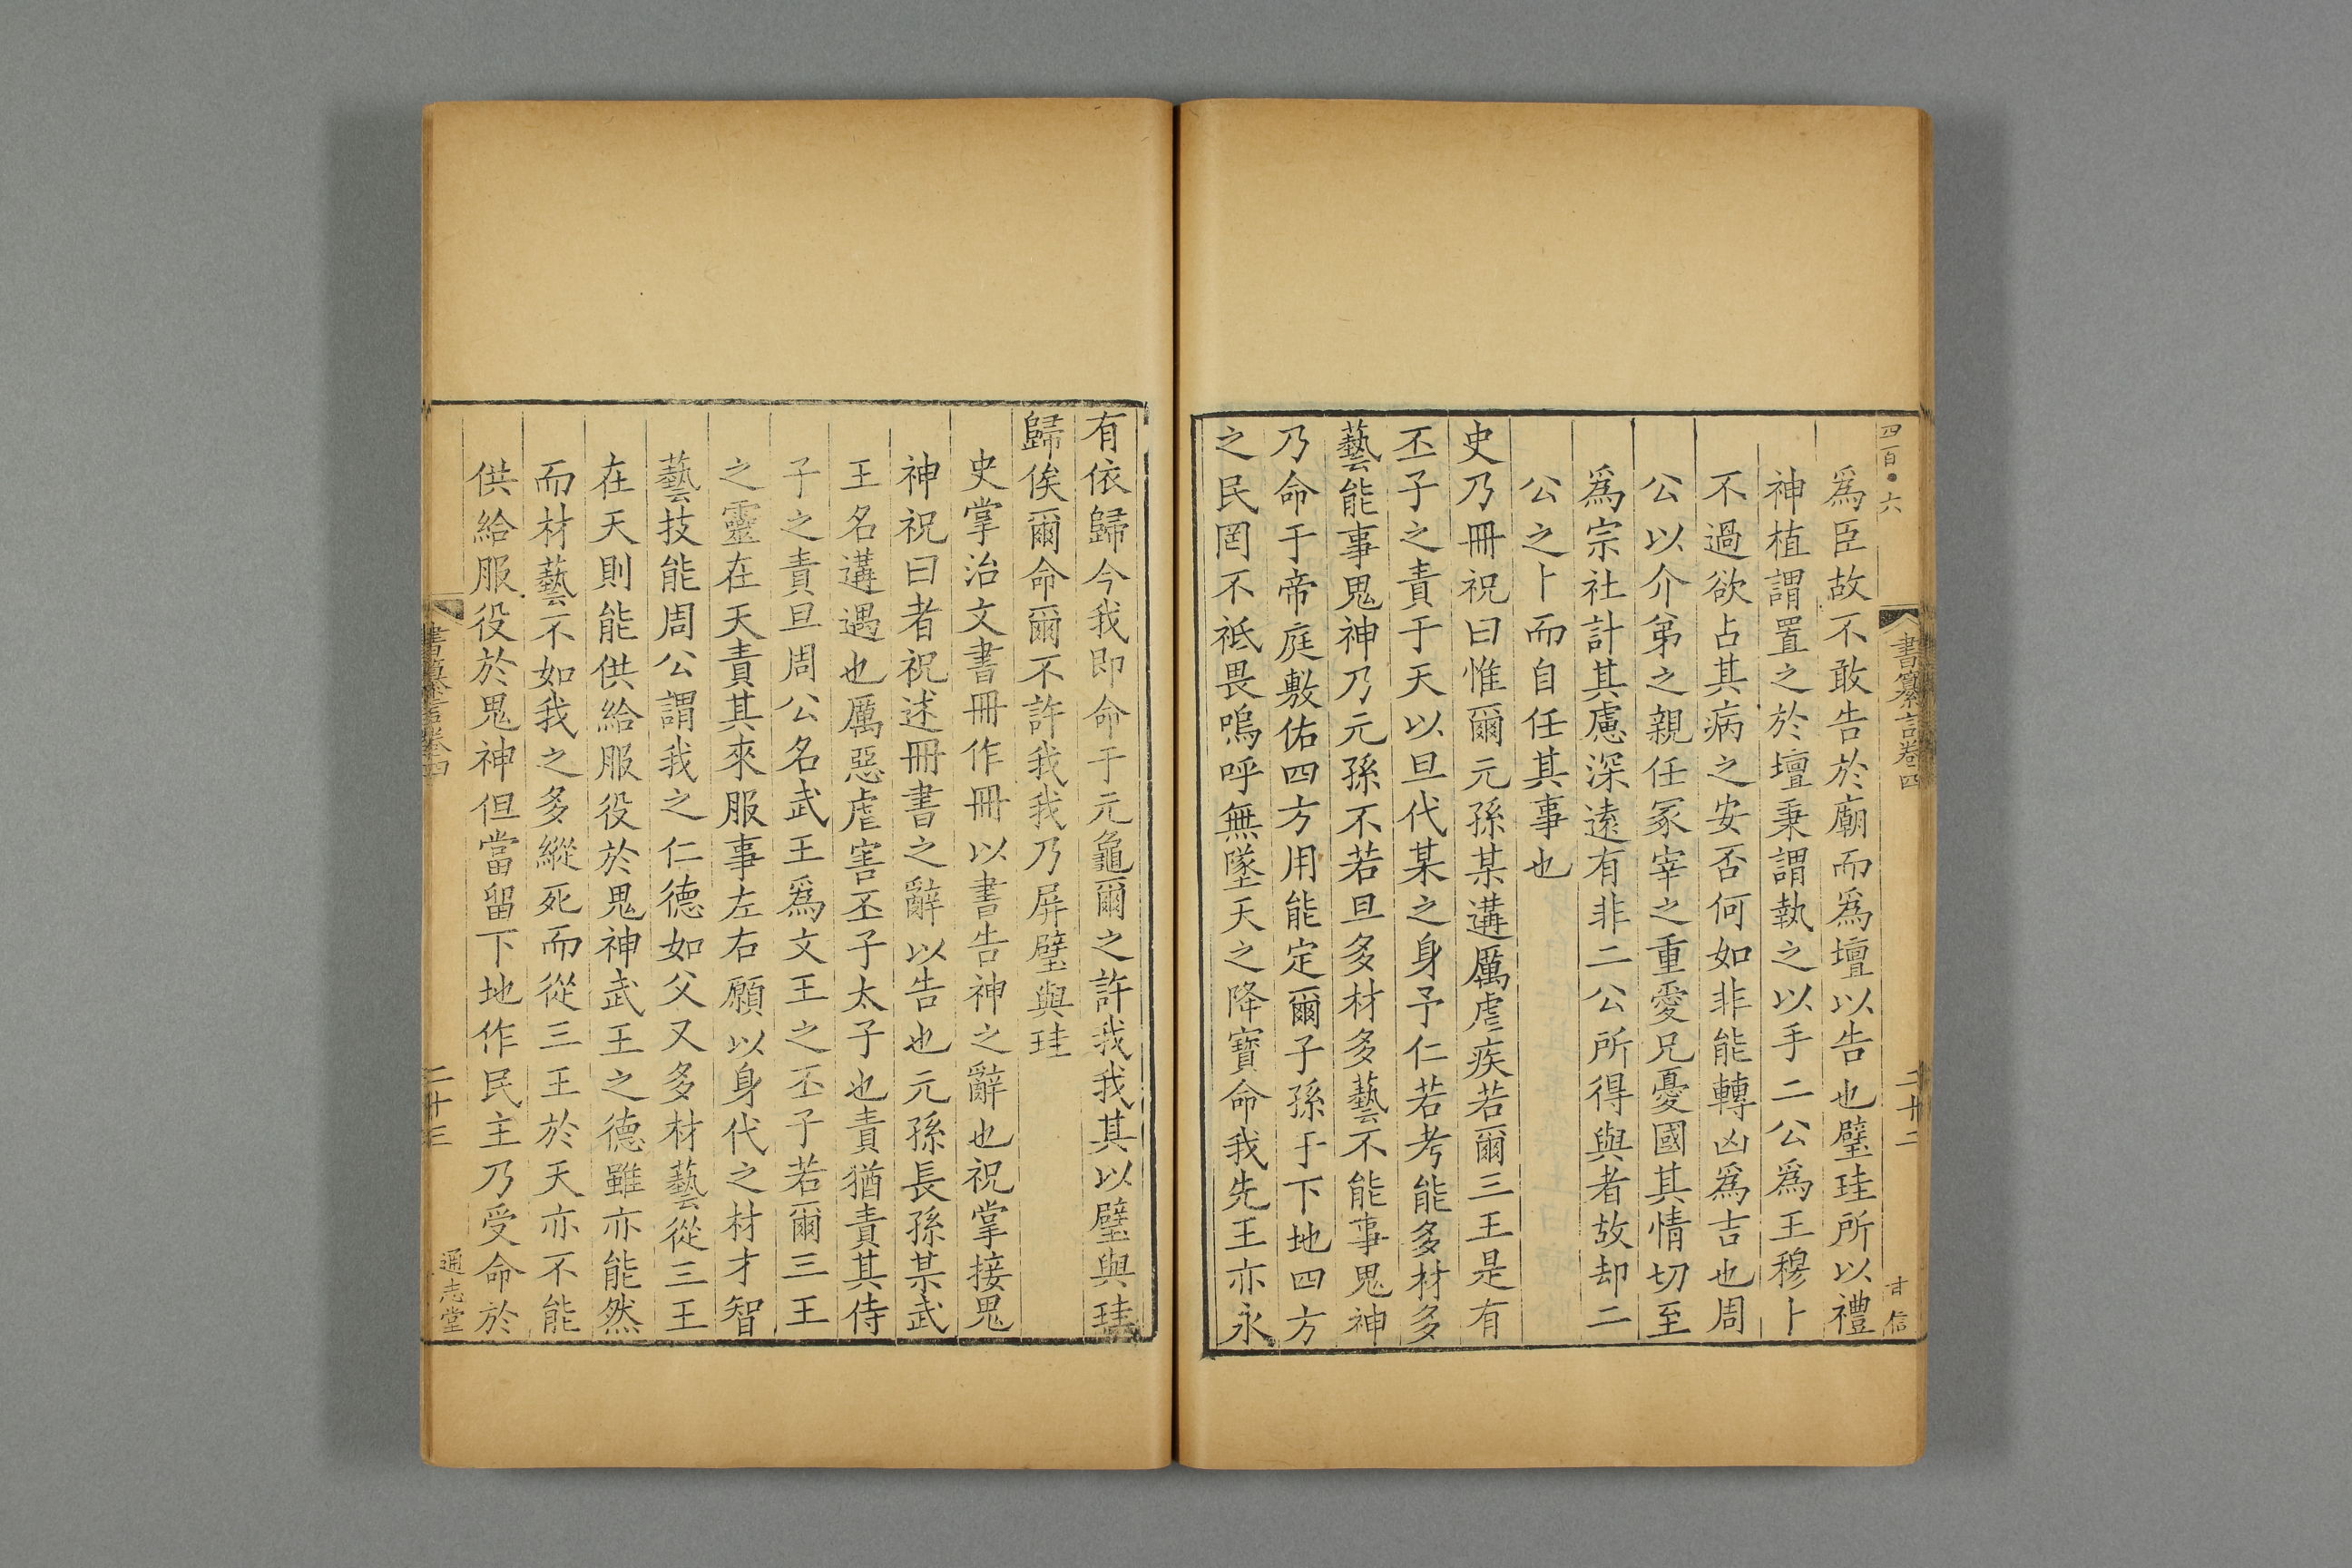 四百●六
書纂言卷四
二十二
甘信
爲臣故不敢告於廟而爲壇以告也璧珪所以禮
神植謂置之於壇秉謂執之以手二公爲王穆卜
不過欲占其病之安否何如非能轉凶爲吉也周
公以介弟之親任冢宰之重愛兄憂國其情切至
爲宗社計其慮深遠有非二公所得與者故却二
公之卜而自任其事也
史乃冊祝曰惟爾元孫某遘厲虐疾若爾三王是有
丕子之責于天以旦代某之身予仁若考能多材多
藝能事鬼神乃元孫不若旦多材多藝不能事鬼神
乃命于帝庭敷佑四方用能定爾子孫于下地四方
之民罔不祗畏嗚呼無墜天之降寶命我先王亦永
有依歸今我即命于元龜爾之許我我其以璧與珪
歸俟爾命爾不許我我乃屏璧與珪
史掌治文書冊作冊以書告神之辭也祝掌接鬼
神祝曰者祝述冊書之辭以告也元孫長孫某武
王名遘遇也厲惡虐害丕子太子也責猶責其侍
子之責旦周公名武王爲文王之丕子若爾三王
之靈在天責其來服事左右願以身代之材才智
藝技能周公謂我之仁德如父又多材藝從三王
在天則能供給服役於鬼神武王之德雖亦能然
而材藝不如我之多縱死而從三王於天亦不能
供給服役於鬼神但當留下地作民主乃受命於
書纂言卷四
二十三
通志堂